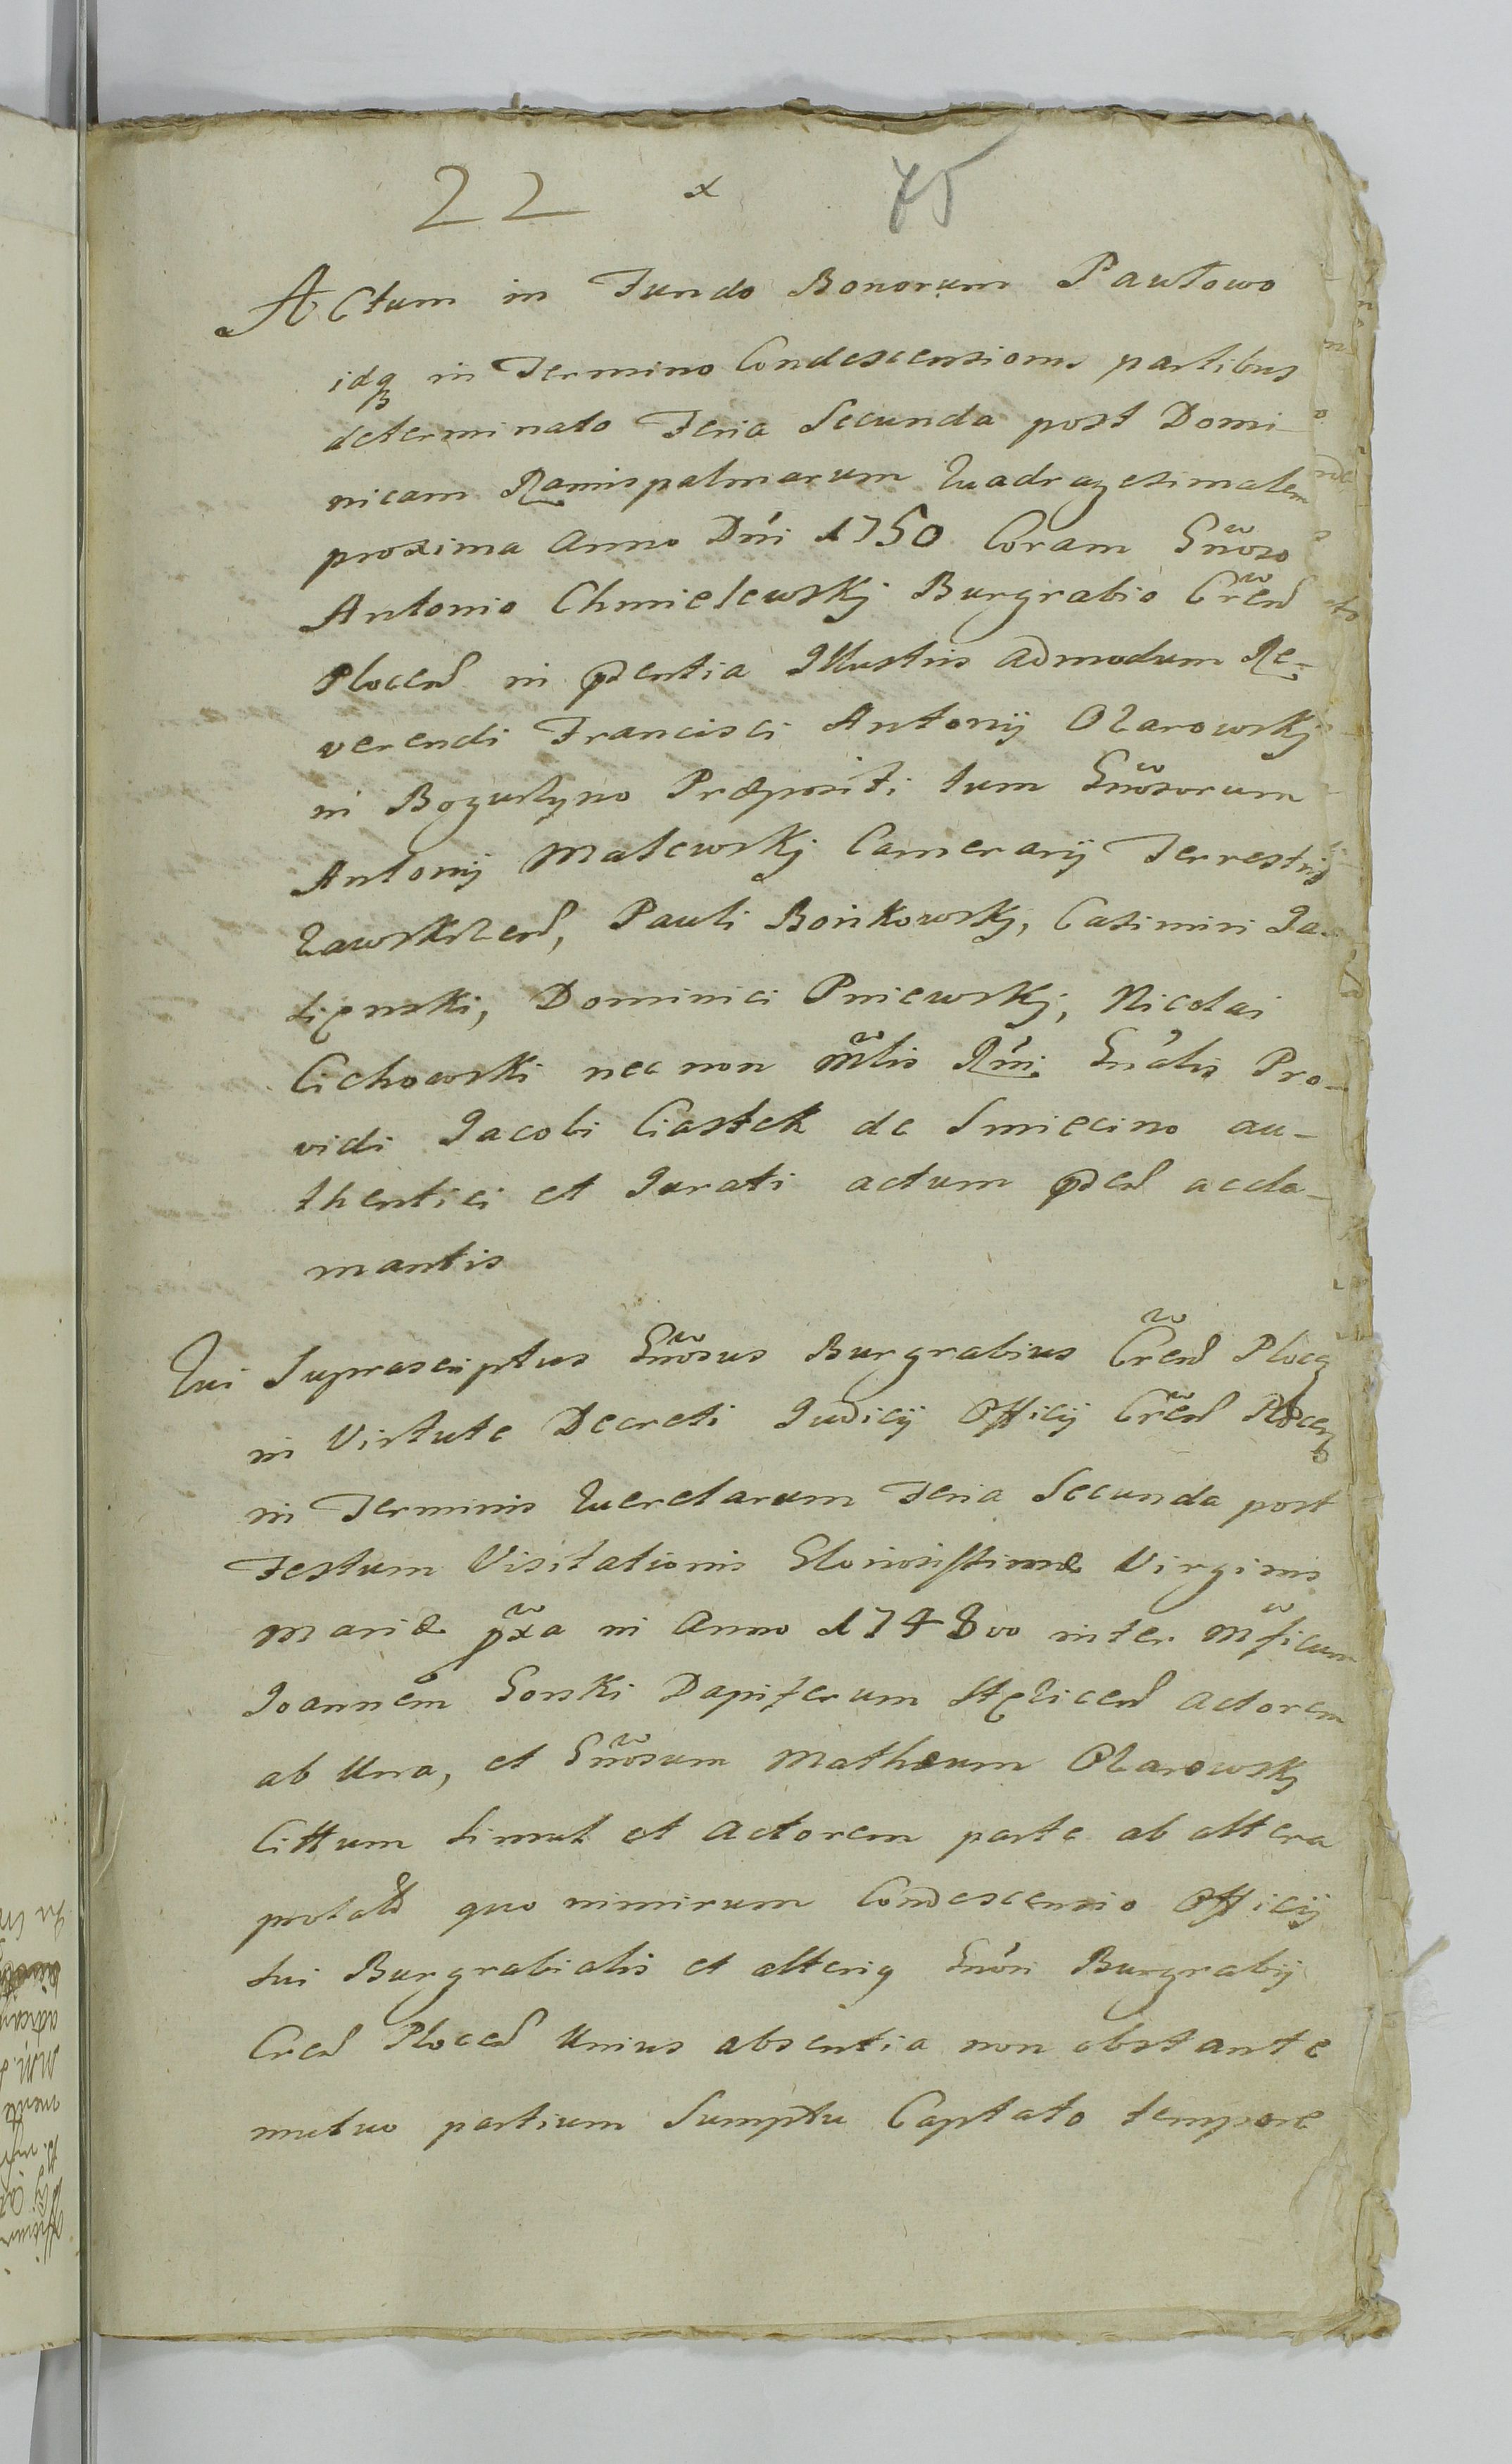 22 x 75
Actum in Fundo Bonorum Pawłowo
idq in Termino Condescensionis partibus
determinato Feria Secunda post Domi-
nicam Ramispalmarum Quadragesimalem
proxima Anno Dńi 1750 Coram Gñoso
Antonio Chmielewskj Burgrabio Cřen
Plocen in pñtia Illustris admodum Re-
verendi Francisci Antonij Ożarowskj
in Bogurzyno Præpositi tum Gñosorum
Antonij Malewskj Camerarij Terrestris
Zawskrzen, Pauli Bońkowskj, Casimiri Ja-
sięnski, Dominici Pniewskj, Nicolai
Cichowski nec non mñlis Rńi Gńalis Pro-
vidi Jacobi Ciastek de Smiecino au-
thentici et Jurati actum pñten accla-
mantis
Qui Suprascriptus Gñosus Burgrabius Cřen Plocen
in Virtute Decreti Judicij Officij Cřen Plocen
in Terminis Querelarum Feria Secunda post
Festum Visitationis Gloriosissimæ Virginis
Mariæ pxa in Anno 1748vo inter Mficum
Joannem Gorski Dapiferum Stężicen Actorem
ab Una, et Gñosum Mathæum Ożarowskj
Cittum simul et Actorem parte ab altera
prolati quo nimirum Condescensio Officij
sui Burgrabialis et alteriq Gnósi Burgrabij
Cren Plocen Unius absentia non obstante
mutuo partium Sumptu Captato tempore